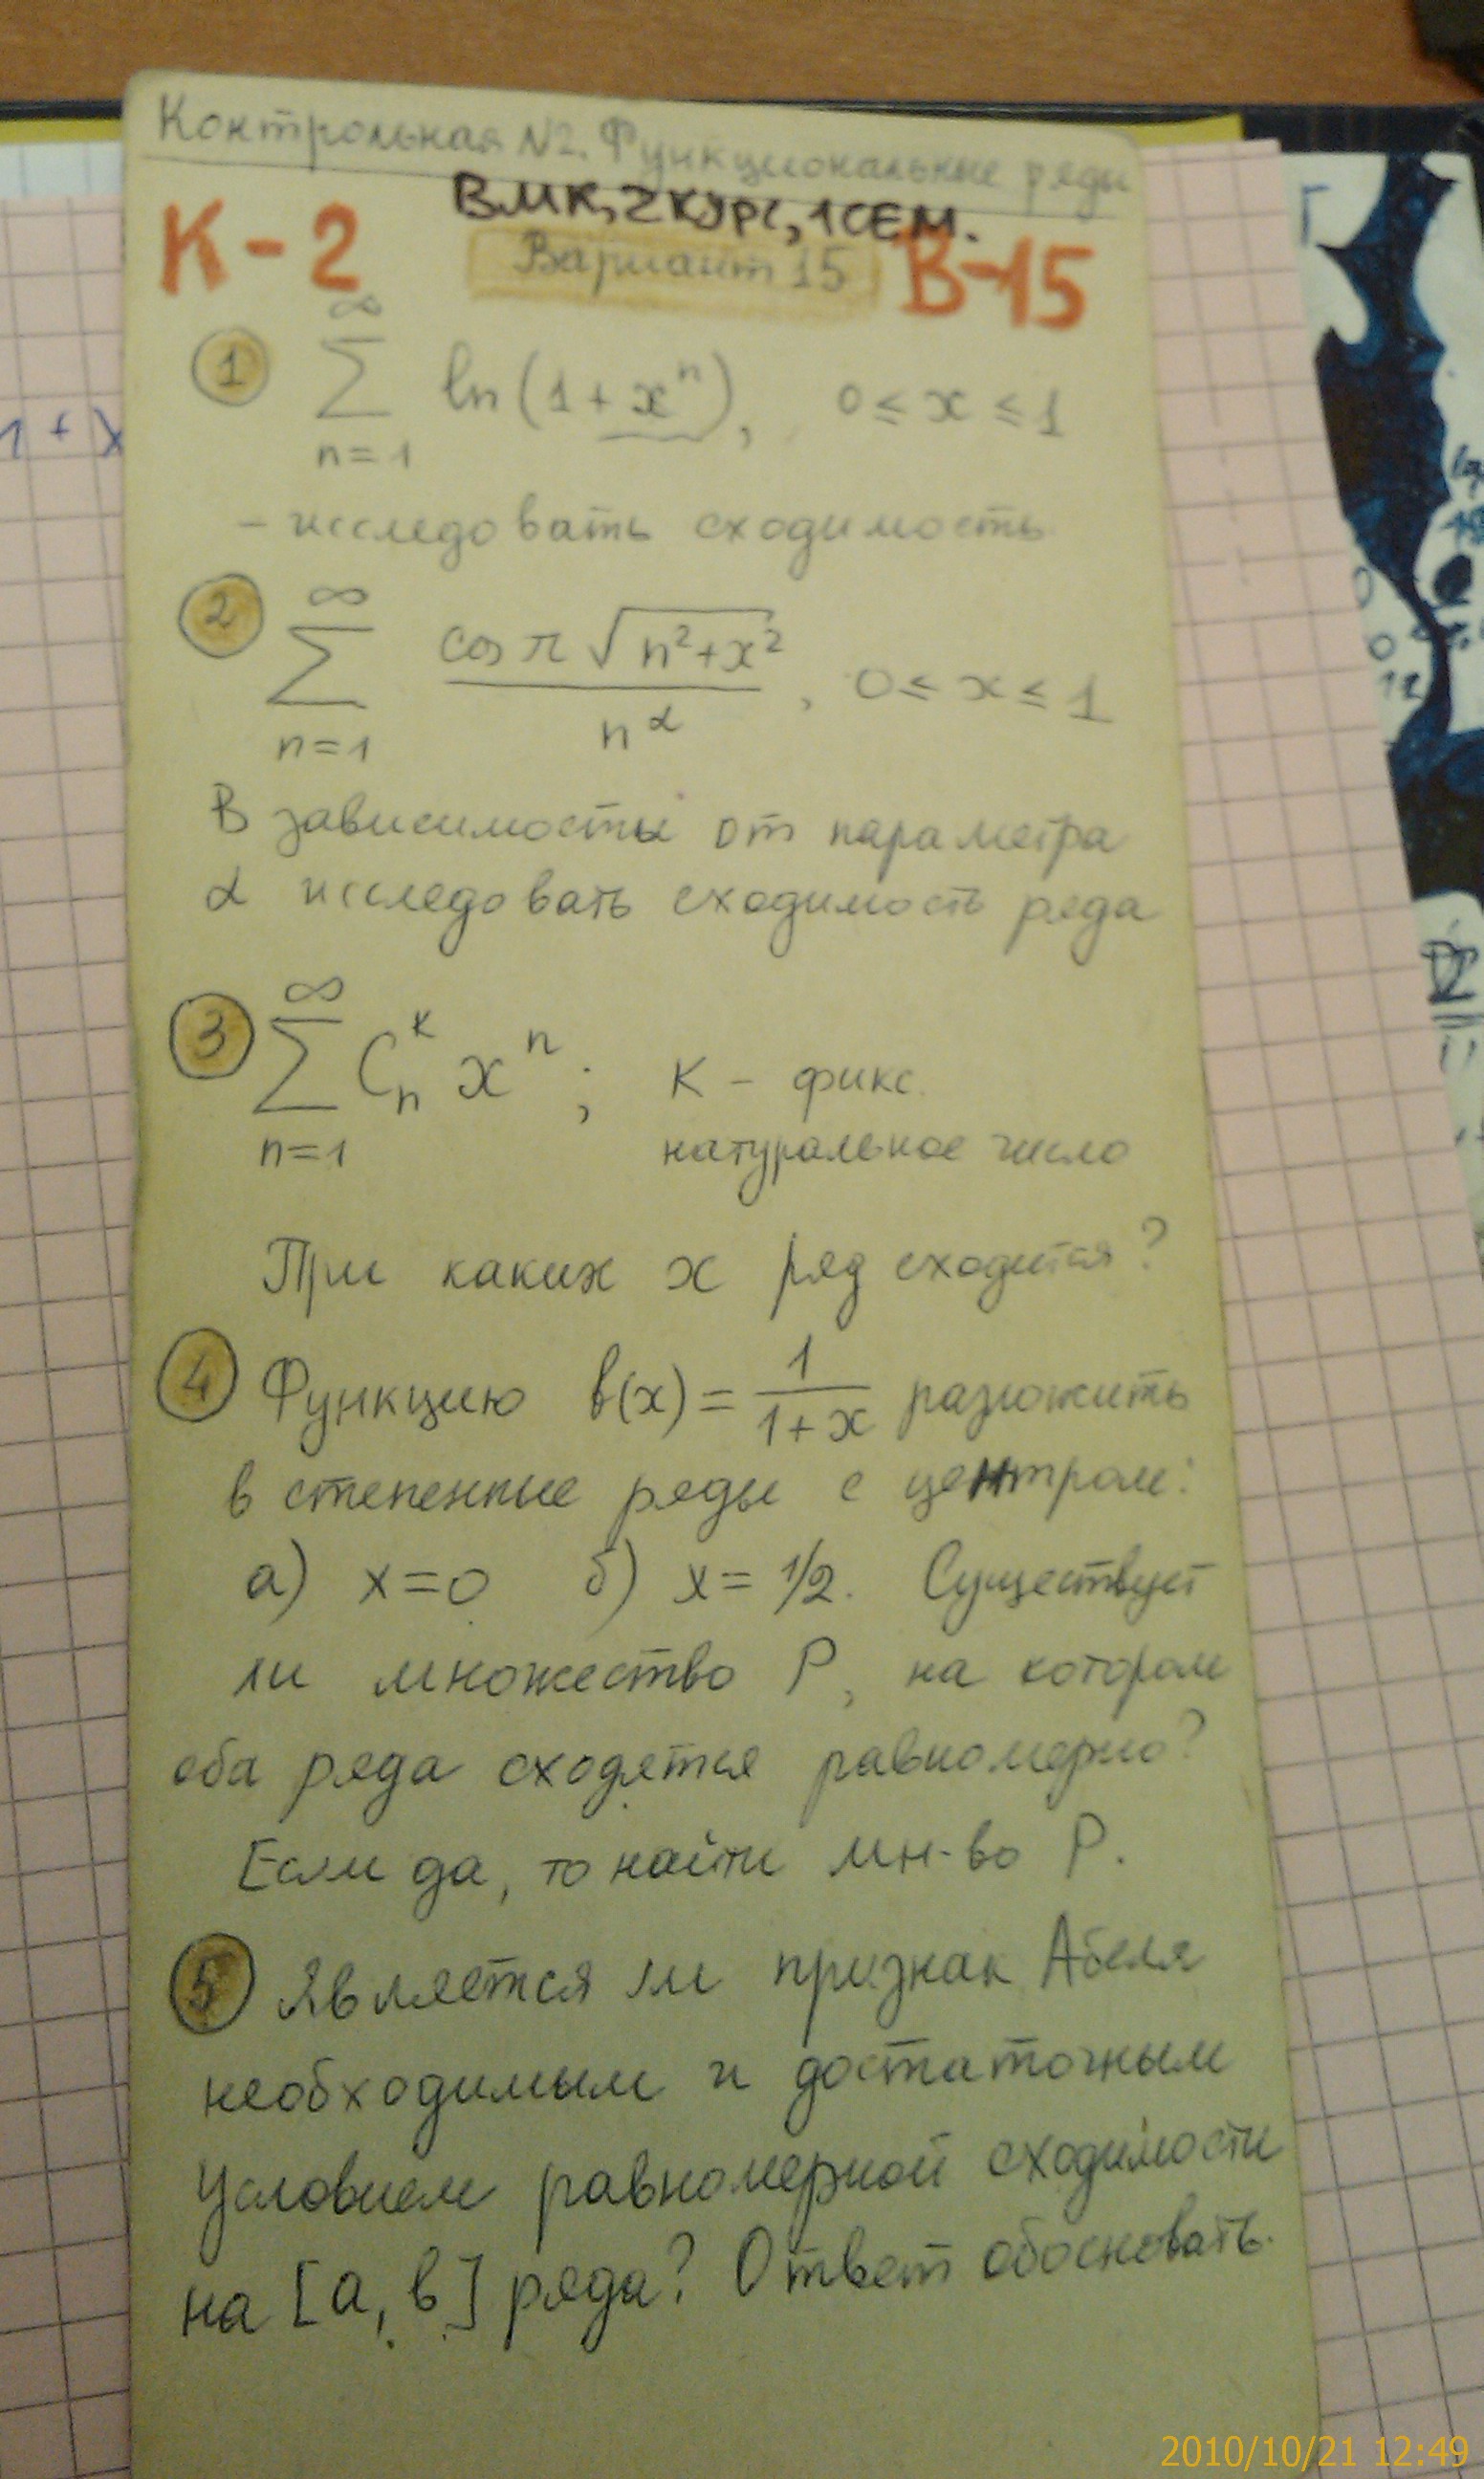 Контрольная №2. Функциональные ряды
ВМК, 2 КУРС, 1 СЕМ.
К-2 Вариант 15 В-15
1 ∞ ∑ n=1 ln(1+xⁿ), 0≤x≤1
- исследовать сходимость
2 ∞ ∑ n=1 cos π √(n²+x²) / n^α, 0≤x≤1
В зависимости от параметра
α исследовать сходимость ряда
3 ∞ ∑ n=1 C_n^k xⁿ; К - фикс.
натуральное число
При каких x ряд сходится?
4 Функцию b(x) = 1/(1+x) разложить
в степенные ряды с центром:
а) x=0 б) x=1/2. Существует
ли множество P, на котором
оба ряда сходятся равномерно?
Если да, то найти мн-во P.
5 Является ли признак Абеля
необходимым и достаточным
условием равномерной сходимости
на [a, b] ряда? Ответ обосновать.
1+x
2010/10/21 12:49